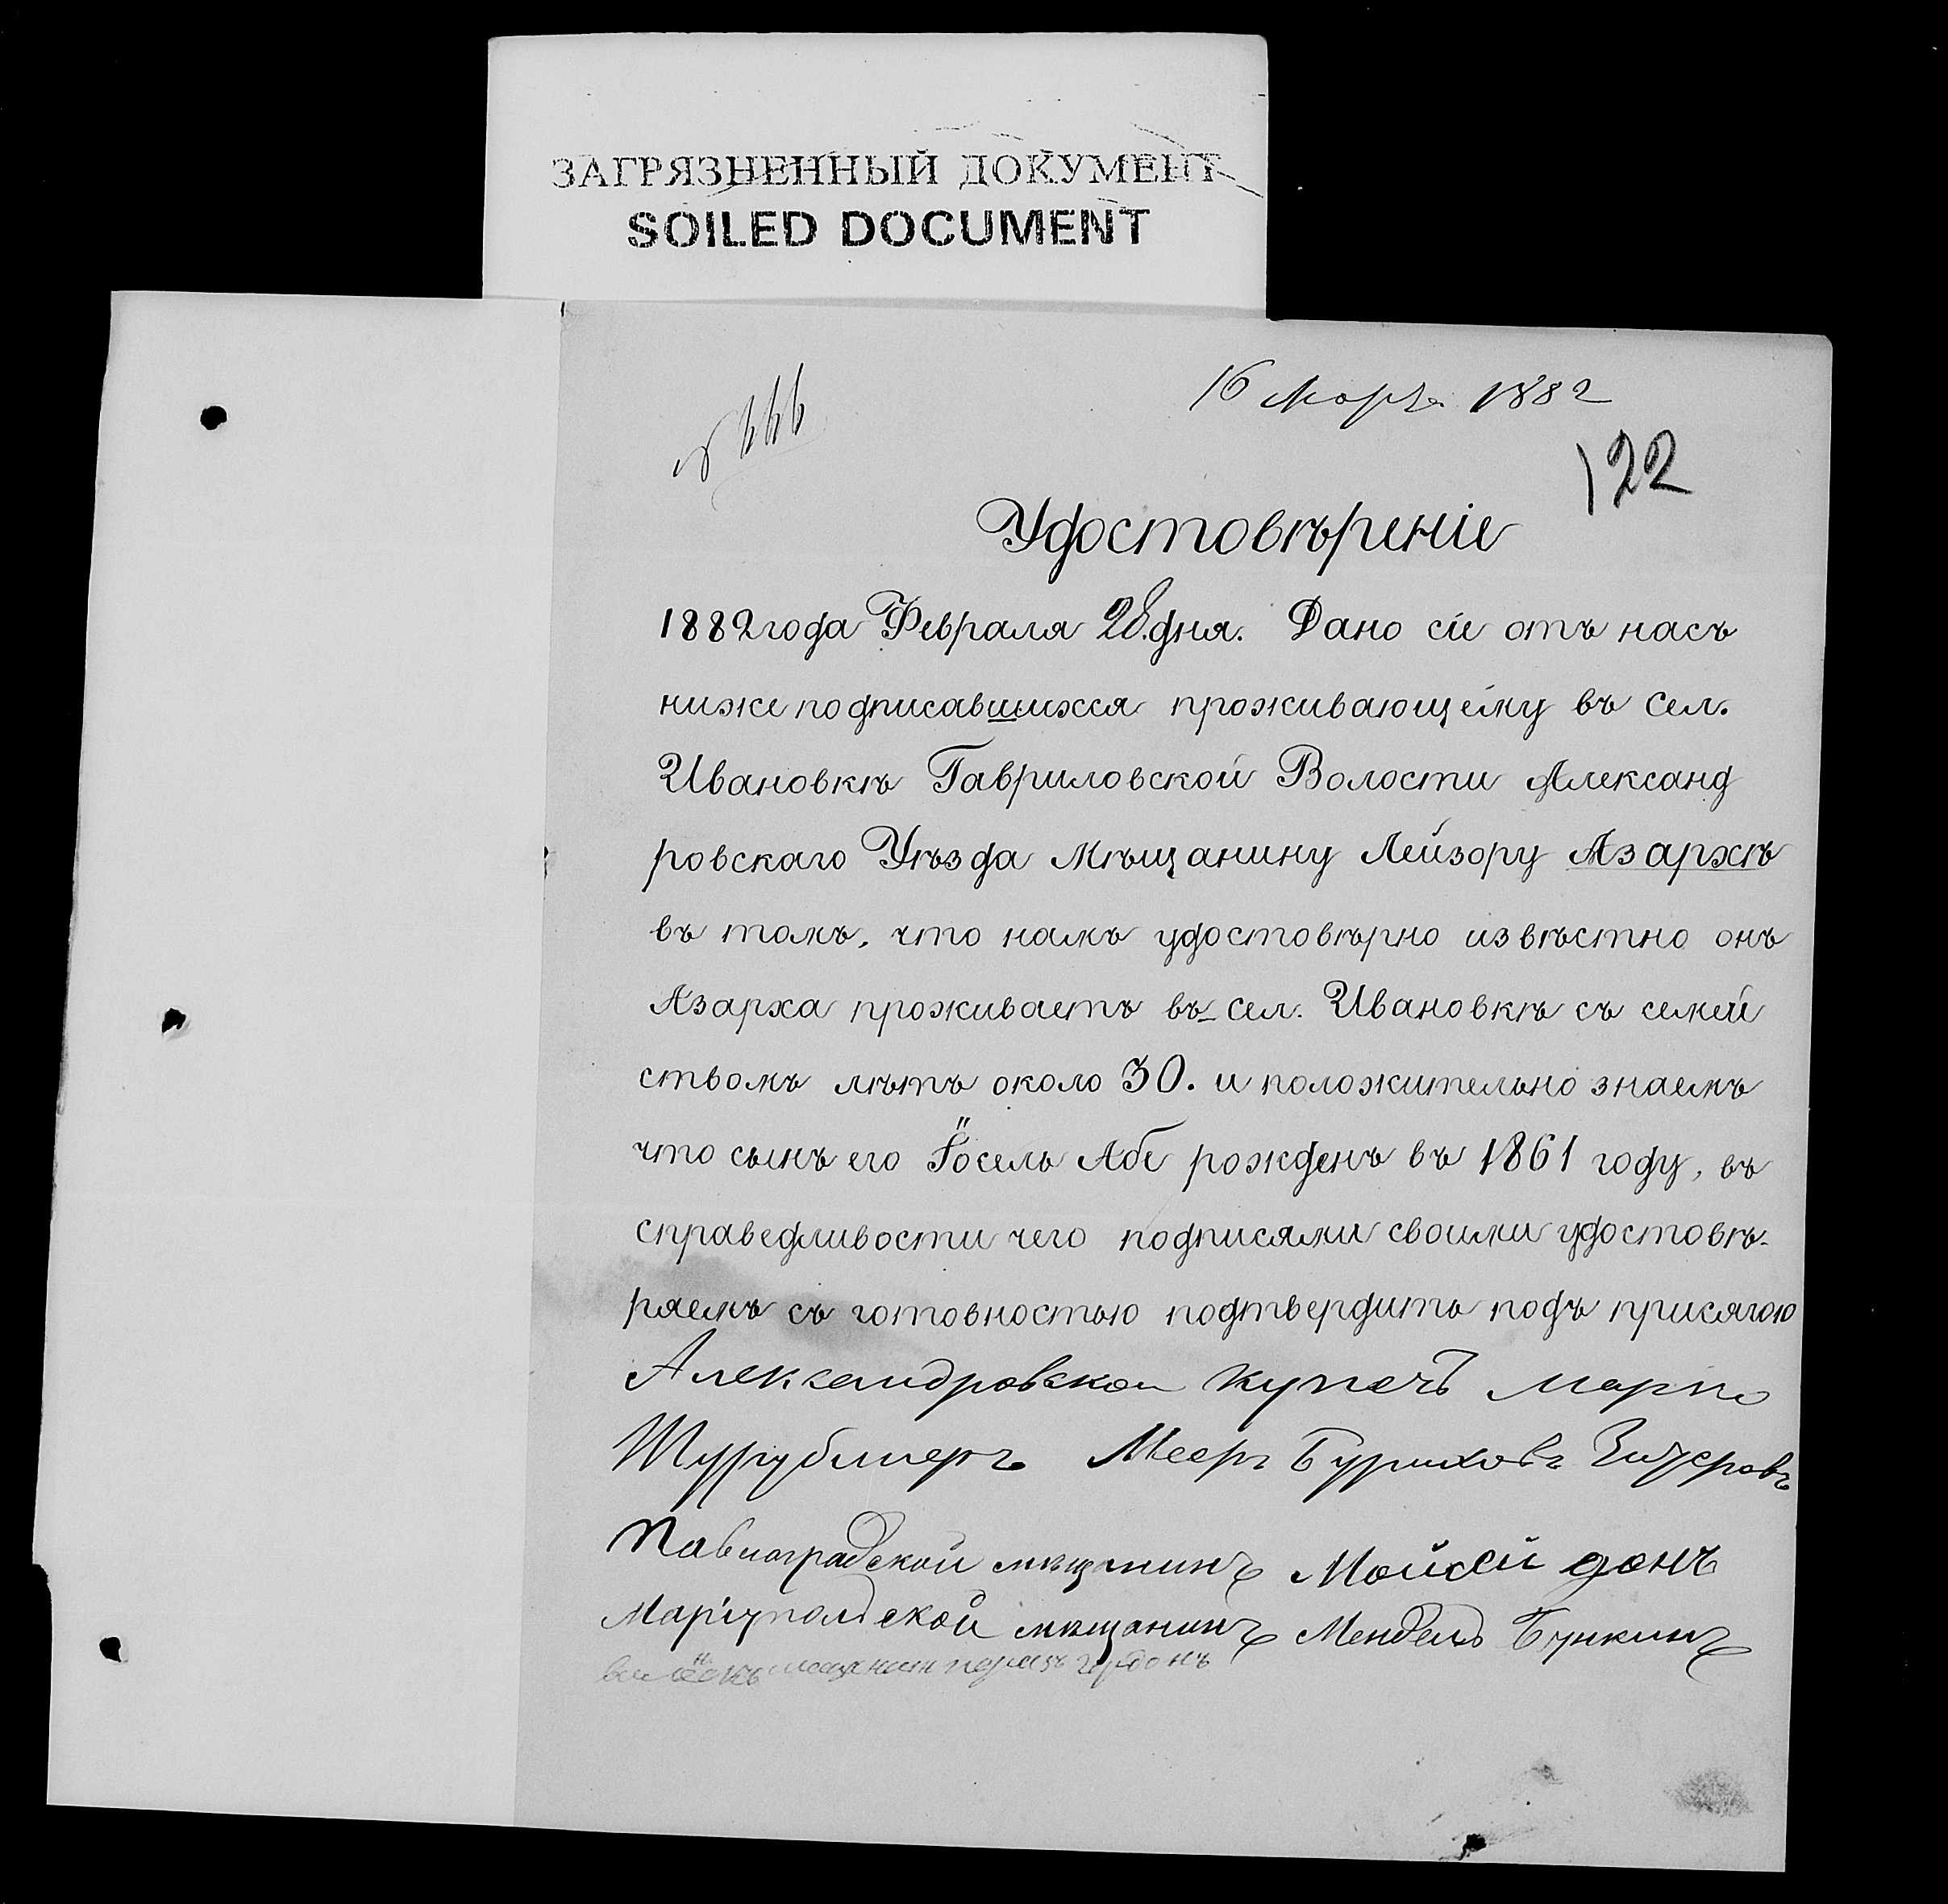 ЗАГРЯЗНЕННЫЙ ДОКУМЕНТ
SOILED DOCUMENT
16 Марта 1882
122
Удостовѣреніе
1882 года Февраля 28. дня. Дано сіе отъ насъ
нижеподписавшихся проживающему въ сел.
Ивановкѣ Гавриловской Волости Александ
ровскаго Уѣзда Мѣщанину Лейзору Азархѣ
въ томъ, что намъ удостовѣрно извѣстно онъ
Азарха проживаетъ въ сел. Ивановкѣ съ семей
ствомъ лѣтъ около 30. и положительно знаемъ
что сынъ его Іосель Абе рожденъ въ 1861 году, въ
справедливости чего подписями своими удостовѣ-
ряемъ съ готовностью подтвердить подъ присягою
Александровской купечъ Марко
Мееръ
Павлоградской мѣщанинъ Мойсей донъ
Маріупольской мѣщанинъ Мендель Бункинъ
гордонъ